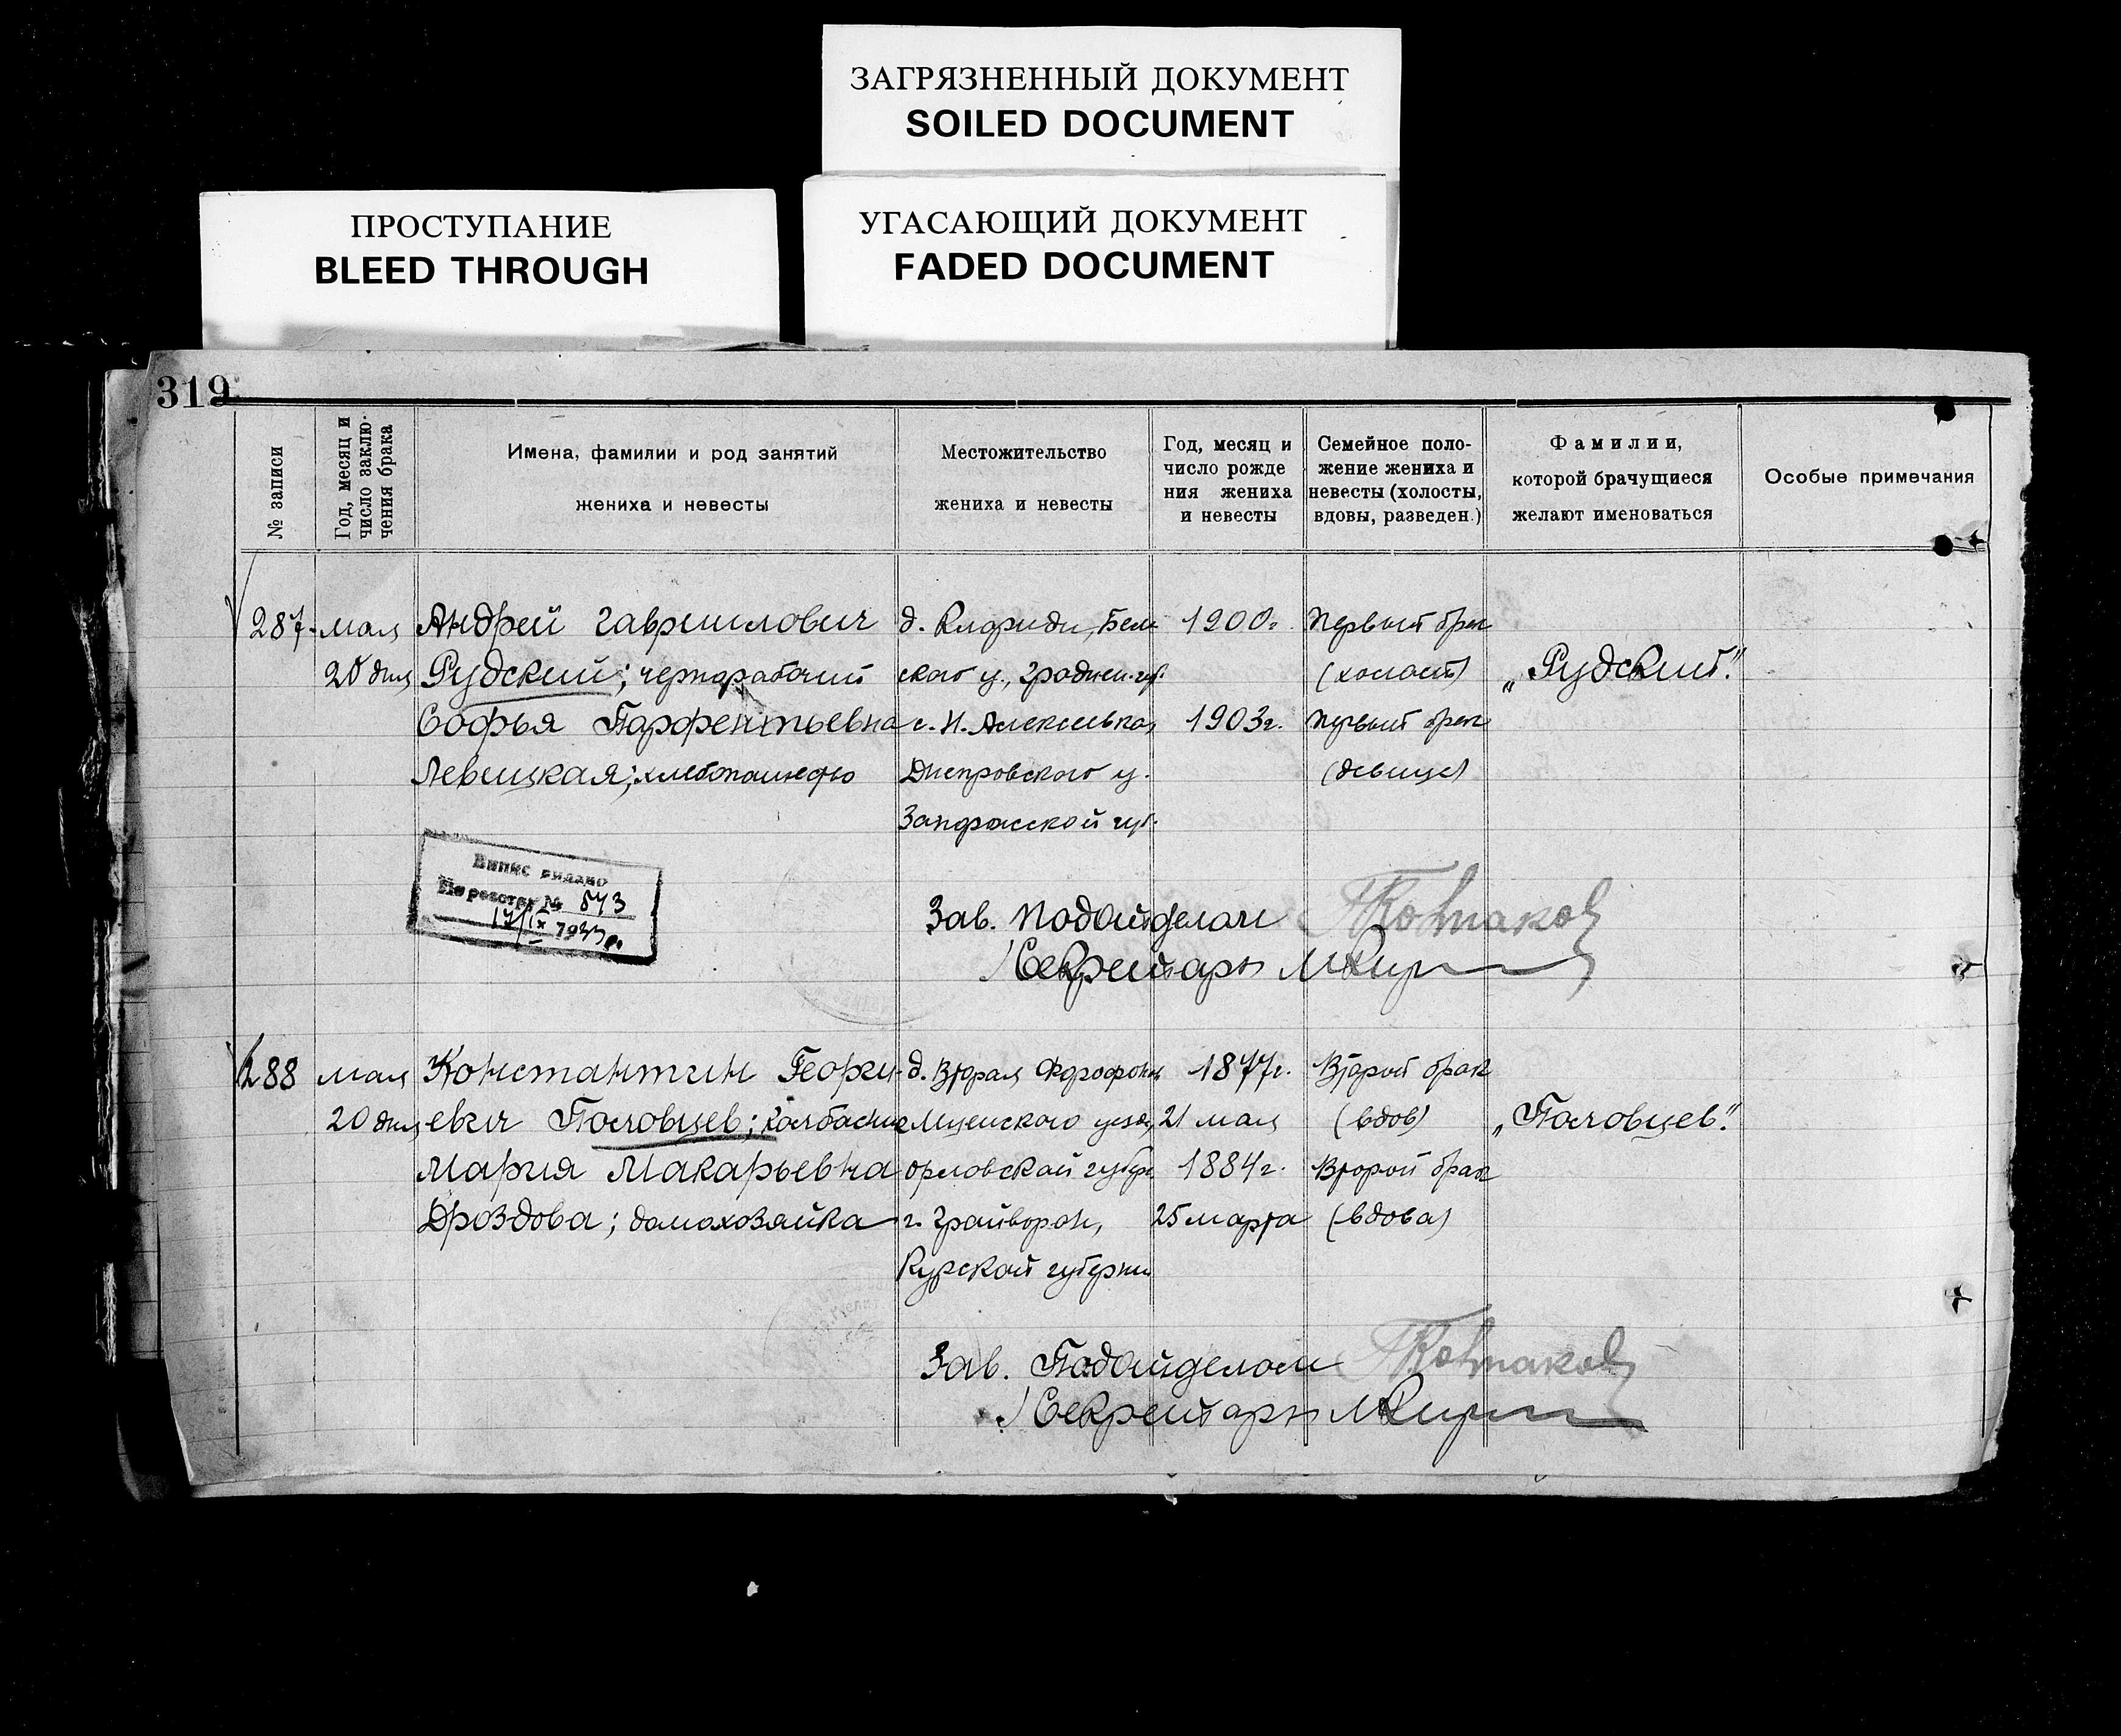 ЗАГРЯЗНЕННЫЙ ДОКУМЕНТ
SOILED DOCUMENT
ПРОСТУПАНИЕ
BLEED THROUGH
УГАСАЮЩИЙ ДОКУМЕНТ
FADED DOCUMENT
319
№ записи
Год, месяц и
число заклю-
чения брака
Имена, фамилии и род занятий
жениха и невесты
Местожительство
жениха и невесты
Год, месяц и
число рожде
ния жениха
и невесты
Семейное поло-
жение жениха и
невесты (холосты,
вдовы, разведен.)
Фамилии,
которой брачущиеся
желают именоваться
Особые примечания
287. мая Андрей Гавриилович д. 1900г. Первый брак
20 дня Рудский; чернорабочий ского у., Гроднен. губ. (холост) „Рудский".
Софья Парфентьевна с. Н. Алексеевка, 1903г. Первый брак
Левицкая; хлебопашество Днепровского у. (девица)
Запорожской губ.
Випис видано
По реєстру № 543
17/IX 1933 р.
Зав. Подотделом
Секретарь
288 мая Константин Георги- д. Вторая 1877г. Второй брак
20 дня евич Половцев; колбасник Мценского уезда, 21 мая (вдов) „Половцев".
Мария Макарьевна Орловской губер. 1884г. Второй брак
Дроздова; домохозяйка г. Грайворон, 25 марта (вдова)
Курской губернии
Зав. Подотделом
Секретарь